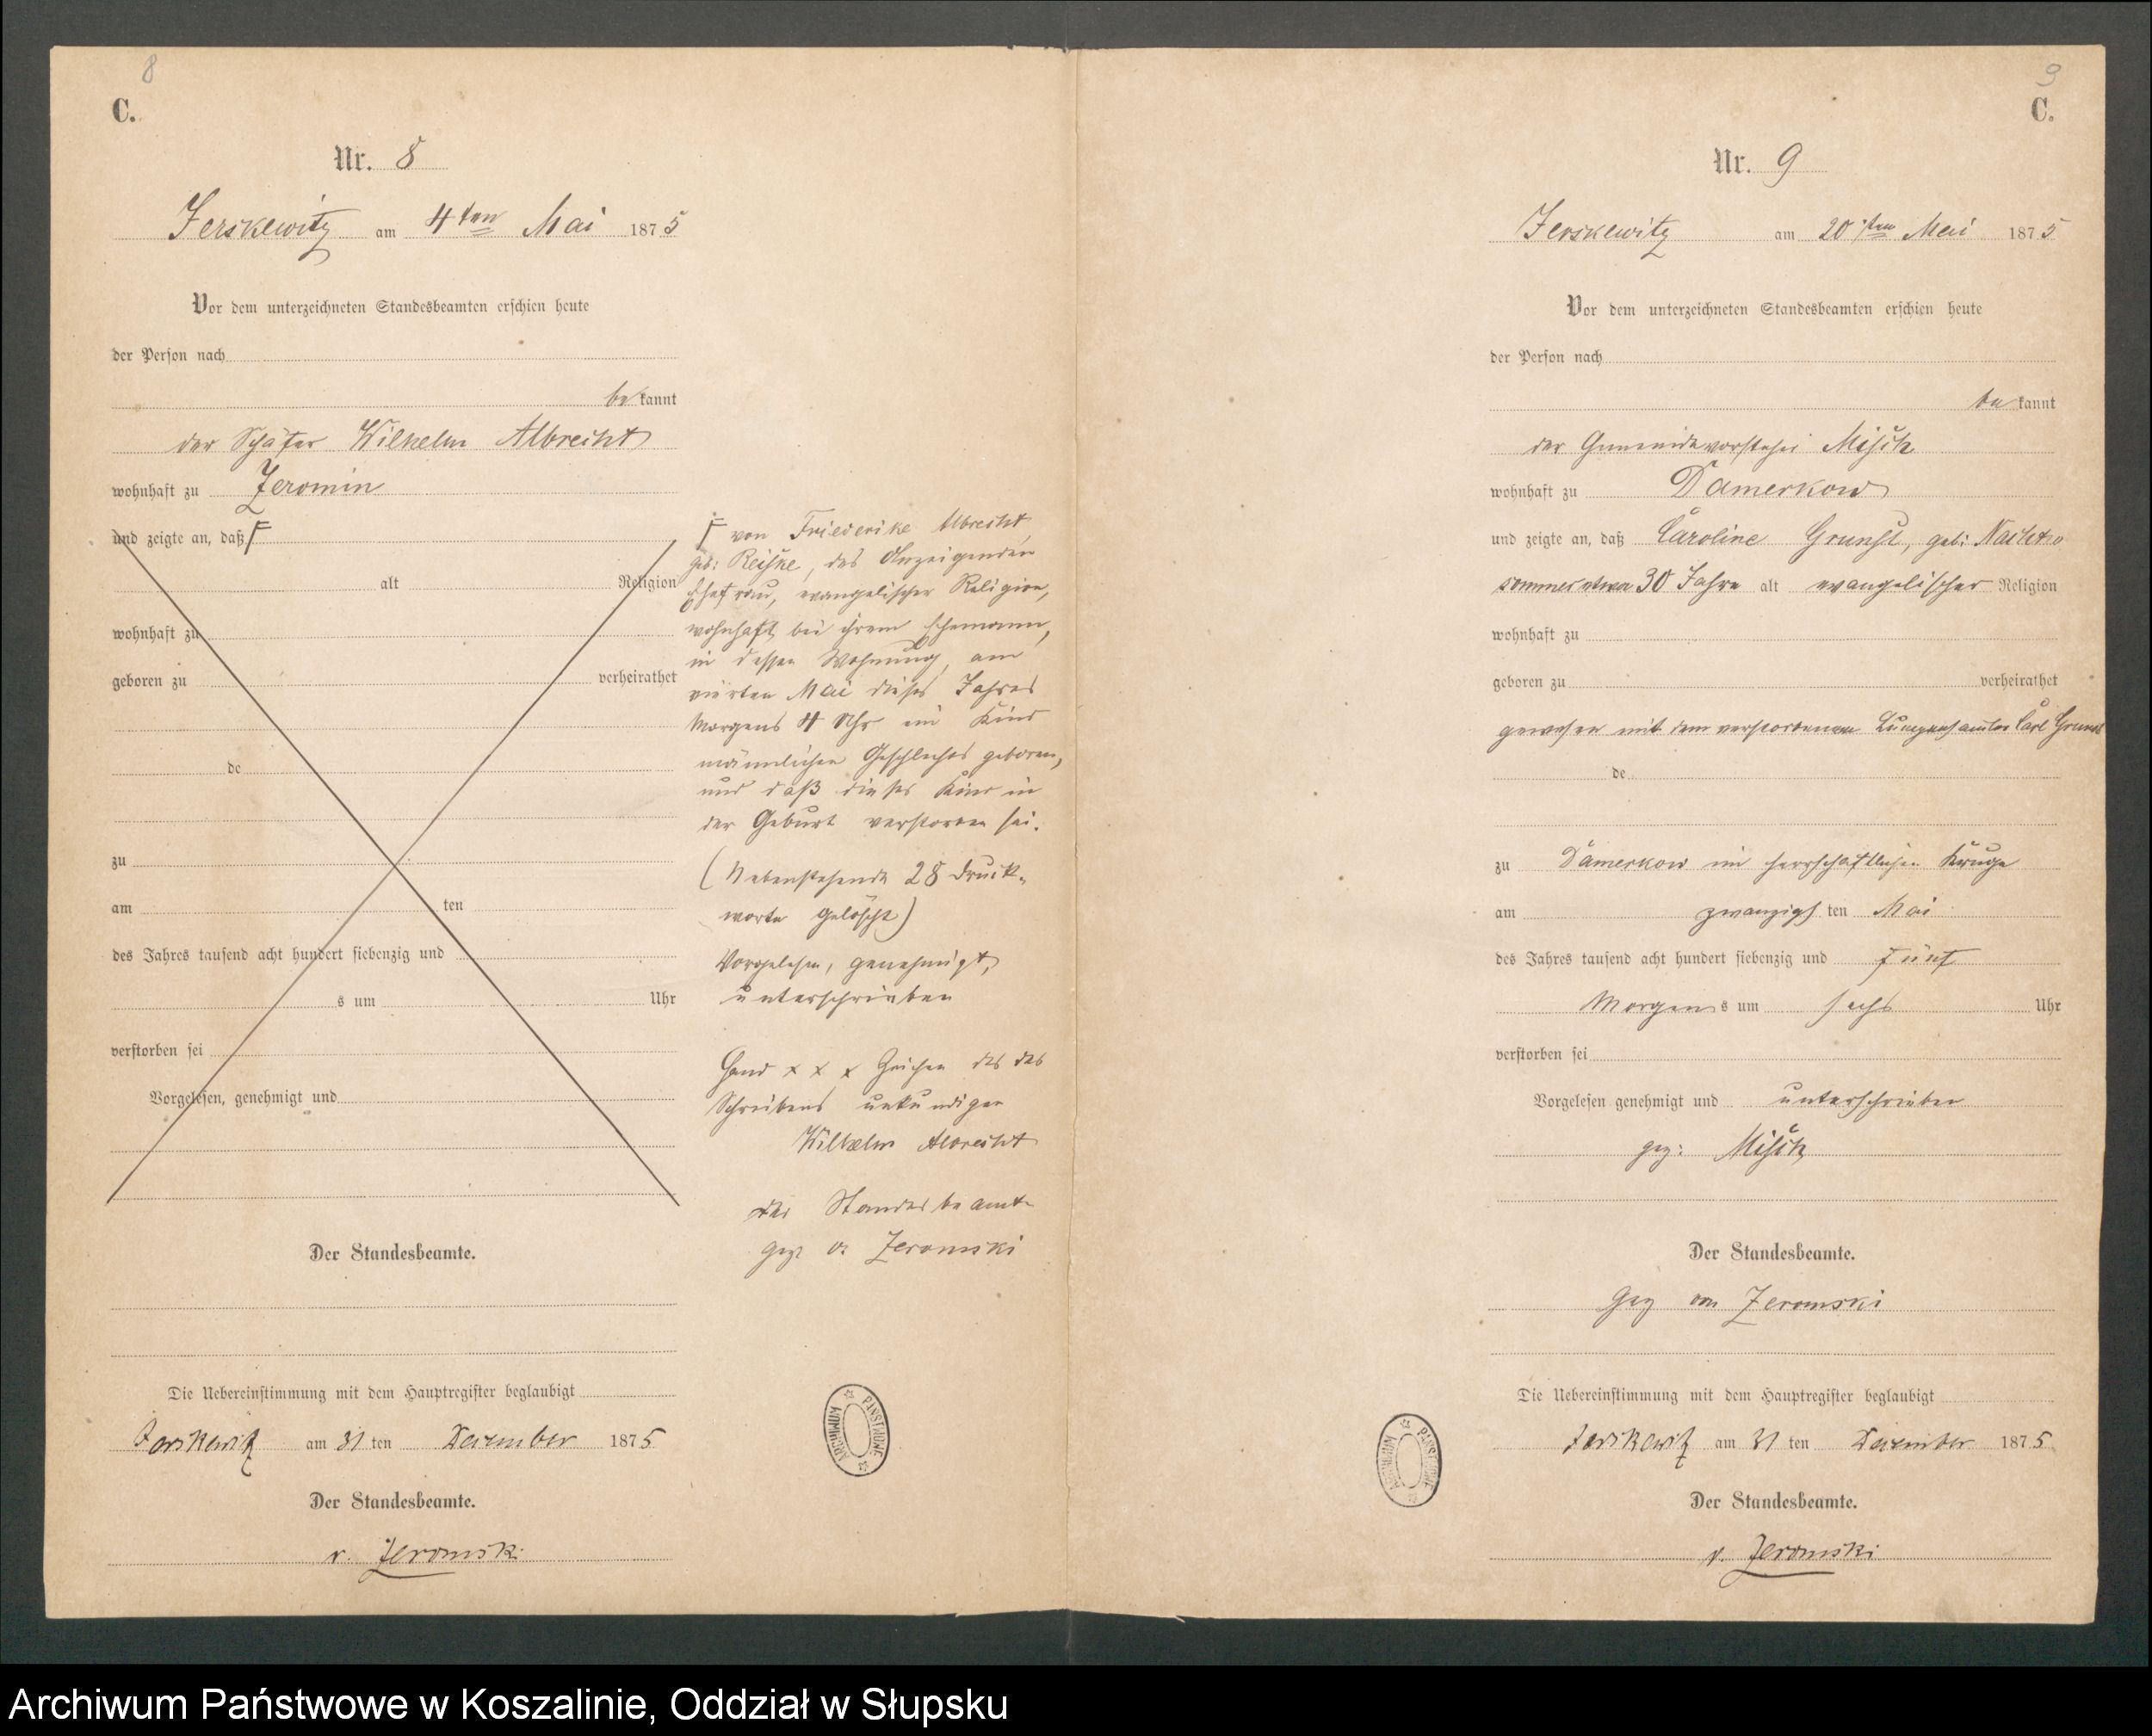 8
C.
Nr. 8
Jerskewitz am 4ten Mai 1875
Vor dem unterzeichneten Standesbeamten erschien heute
der Person nach
bekannt
der Schäfer Wilhelm Albrecht
wohnhaft zu Jeromin
und zeigte an, daß
alt Religion
wohnhaft zu
geboren zu verheirathet
de
zu
am ten
des Jahres tausend acht hundert siebenzig und
s um Uhr
verstorben sei
Vorgelesen, genehmigt und
Der Standesbeamte.
Die Uebereinstimmung mit dem Hauptregister beglaubigt
Jerskewitz am 31 ten Dezember 1875
Der Standesbeamte.
v. Jeromski
von Friederike Albrecht,
geb: Reiske, des Anzeigenden
Ehefrau, evangelischer Religion,
wohnhaft bei ihrem Ehemann,
in dessen Wohnung, am
vierten Mai dieses Jahres
Morgens 4 Uhr ein Kind
männlichen Geschlechts geboren,
und daß dieses Kind in
der Geburt verstorben sei.
(Nebenstehende 28 Druck-
worte gelöscht)
Vorgelesen, genehmigt,
unterschrieben
Hand x x x Zeichen des des
Schreibens unkundigen
Wilhelm Albrecht
der Standesbeamte
gez v. Jeromski
ARCHIWUM PAŃSTWOWE
9
C.
Nr. 9
Jerskewitz am 20sten Mai 1875
Vor dem unterzeichneten Standesbeamten erschien heute
der Person nach
bekannt
der Gemeindevorsteher Misch
wohnhaft zu Damerkow
und zeigte an, daß Caroline Grunst, geb: Nachti
etwa 30 Jahre alt evangelischer Religion
wohnhaft zu
geboren zu verheirathet
gewesen mit dem verstorbenen Lumpensamler Carl Grunst
de
zu Damerkow im herrschaftlichen Kruge
am zwanzigsten Mai
des Jahres tausend acht hundert siebenzig und fünf
Morgens um sechs Uhr
verstorben sei
Vorgelesen genehmigt und unterschrieben
gez: Misch
Der Standesbeamte.
Gez von Jeromski
Die Uebereinstimmung mit dem Hauptregister beglaubigt
Jerskewitz am 31 ten Dezember 1875
Der Standesbeamte.
v. Jeromski
ARCHIWUM PAŃSTWOWE
Archiwum Państwowe w Koszalinie, Oddział w Słupsku